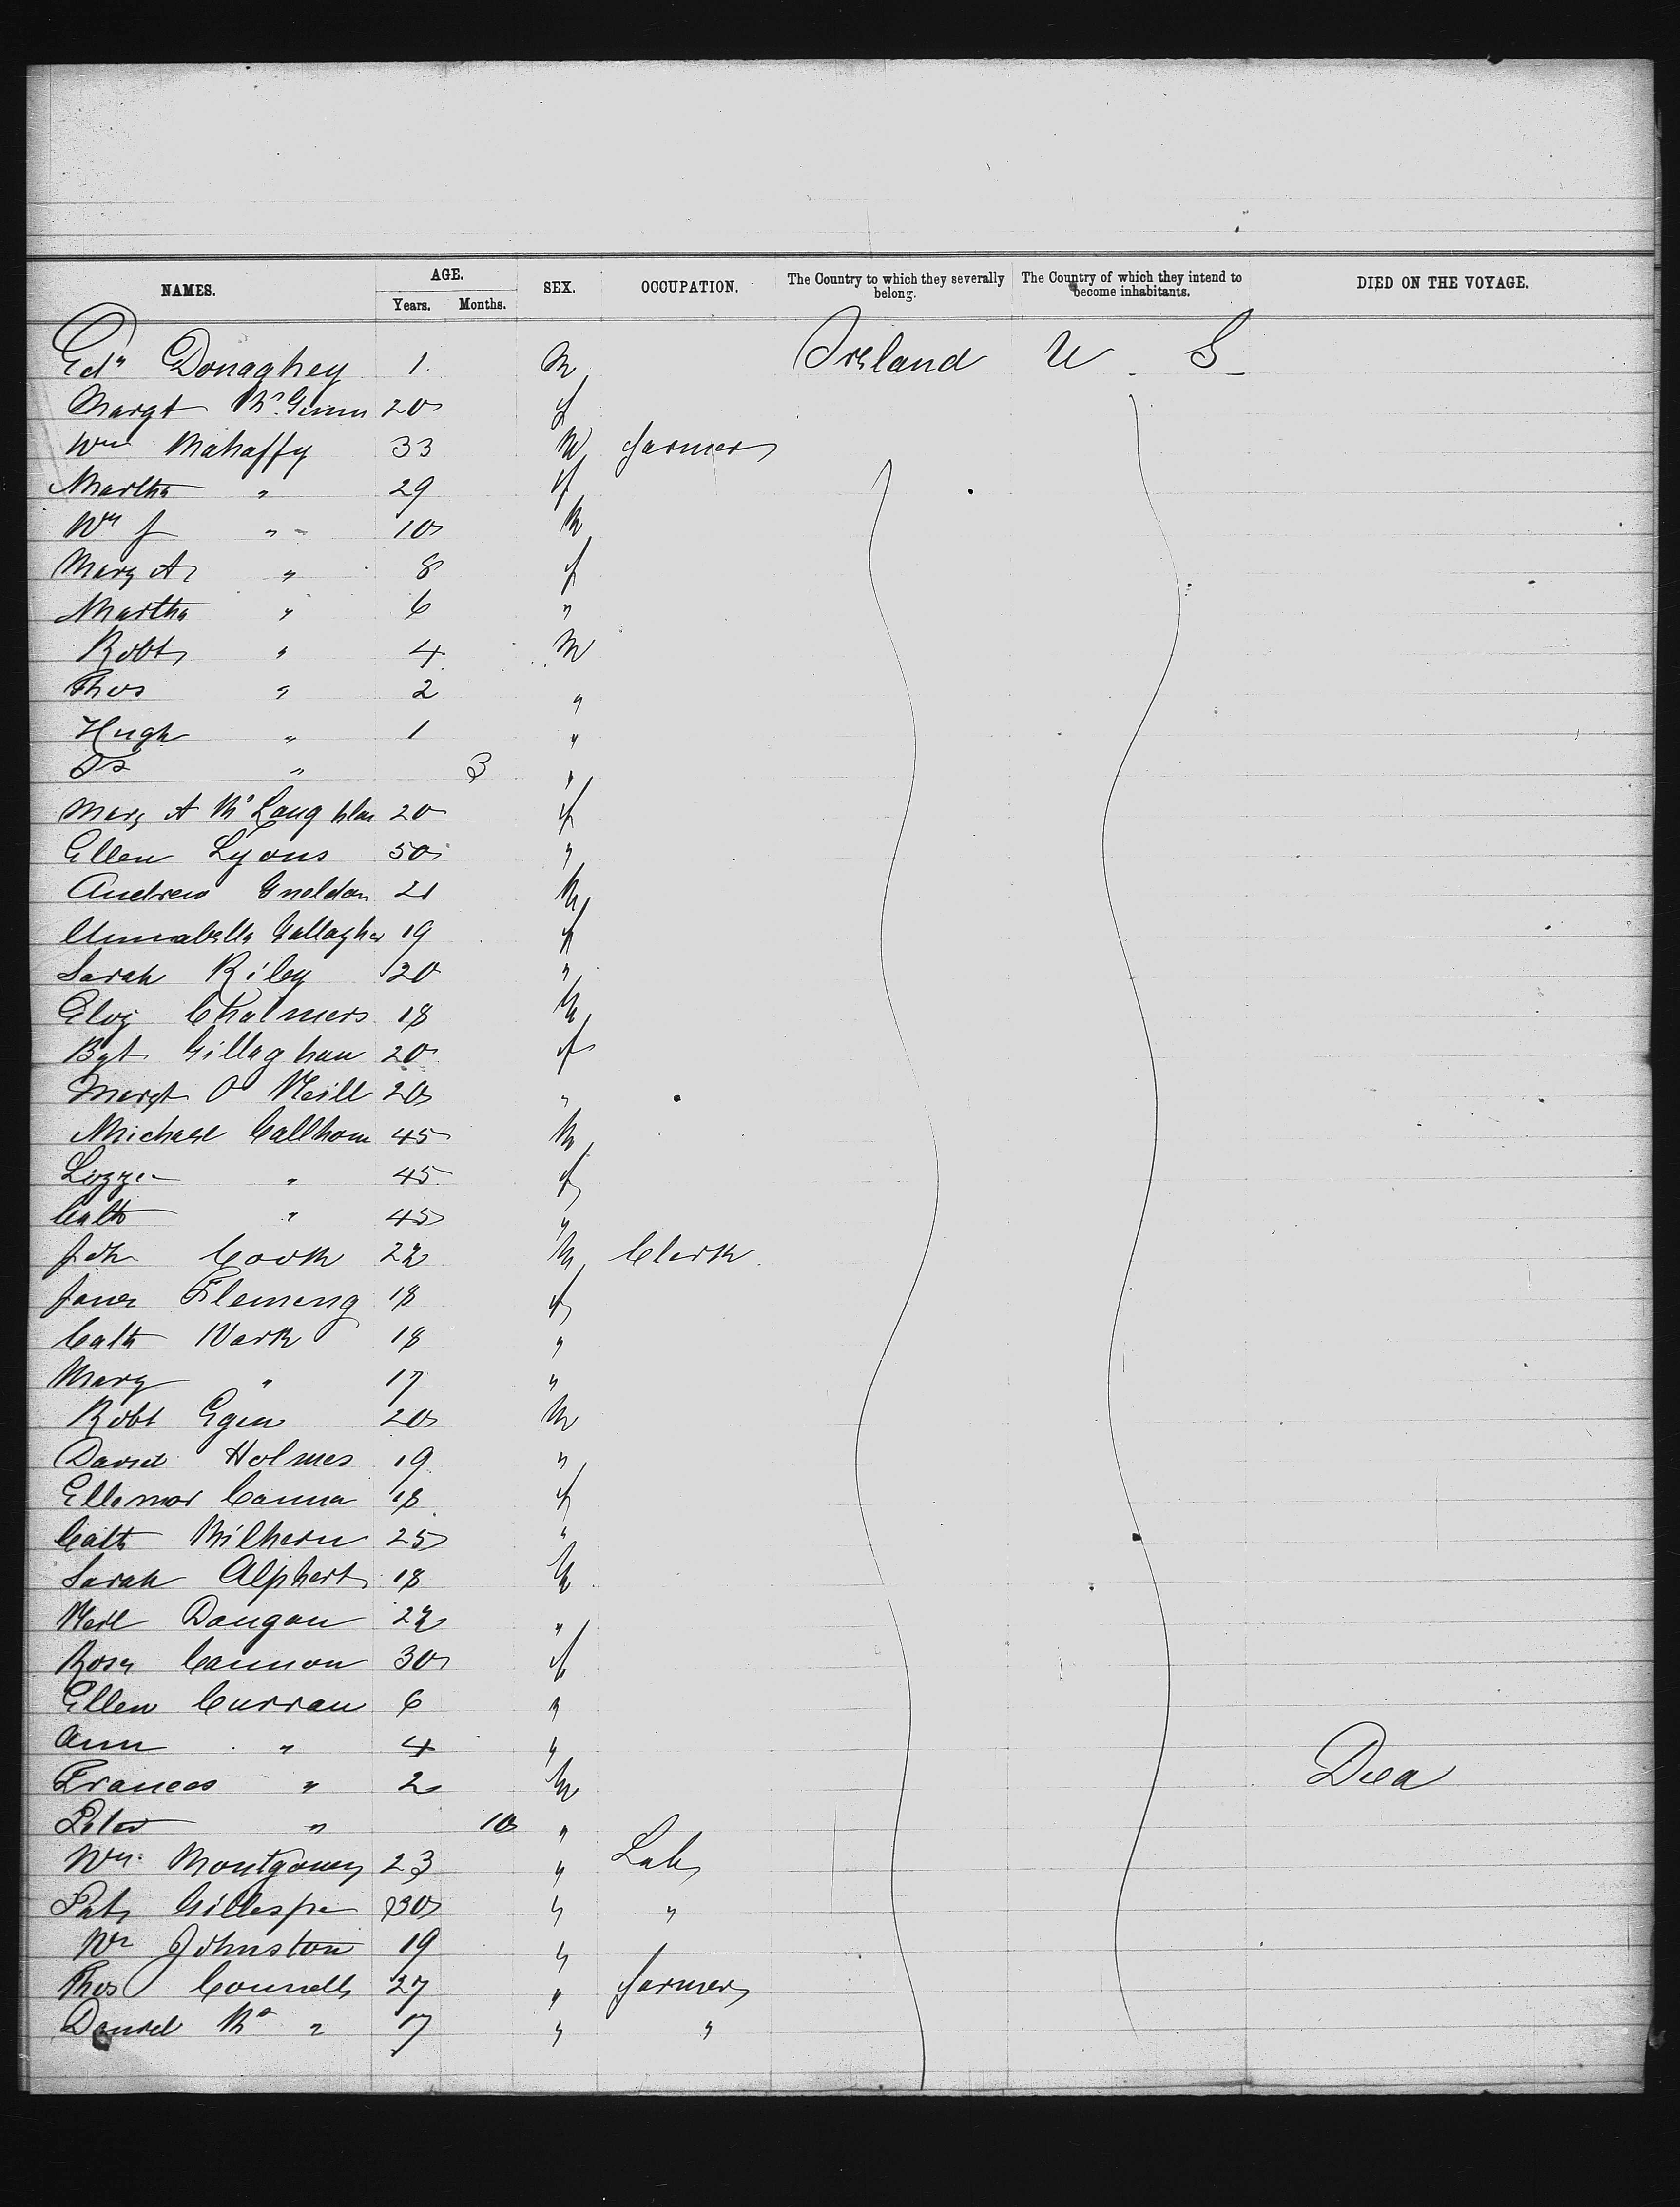 NAMES. AGE. SEX. OCCUPATION. The Country to which they severally belong. The Country of which they intend to become inhabitants. DIED ON THE VOYAGE.
Years. Months.
Edw Donaghey 1 M Ireland U. S
Margt McGinn 20 f
Wm Mahaffy 33 M farmer
Martha " 29 f
Wm J " 10 M
Mary A " 8 f
Martha " 6 "
Robt " 4 M
Thos " 2 "
Hugh " 1 "
" 3 "
Mary A McLaughlan 20 f
Ellen Lyons 50 "
Andrew 21 M
Annabella Gallagher 19 f
Sarah Riley 20 "
Chalmers 18 M
Bgt Gillaghan 20 f
Margt O Neill 20 "
Michael Callhoun 45 M
Lizzie " 45 f
Cath " 45 "
Joh Cook 22 M Clerk
Jane Fleming 18 f
Cath Wark 18 "
Mary " 17 "
Robt Egin 20 M
David Holmes 19 "
Ellenor Canna 18 f
Cath Milhern 25 "
Sarah Alphert 18 M
Neil Dougan 22 "
Rosa Cannon 30 f
Ellen Curran 6 "
Ann " 4 "
Frances " 2 M Died
Peter " 10 "
Wm Montgomery 23 " Lab
Pat Gillespie 30 " "
Wm Johnston 19 "
Thos Connolly 27 " farmer
Daniel Mc " 17 " "